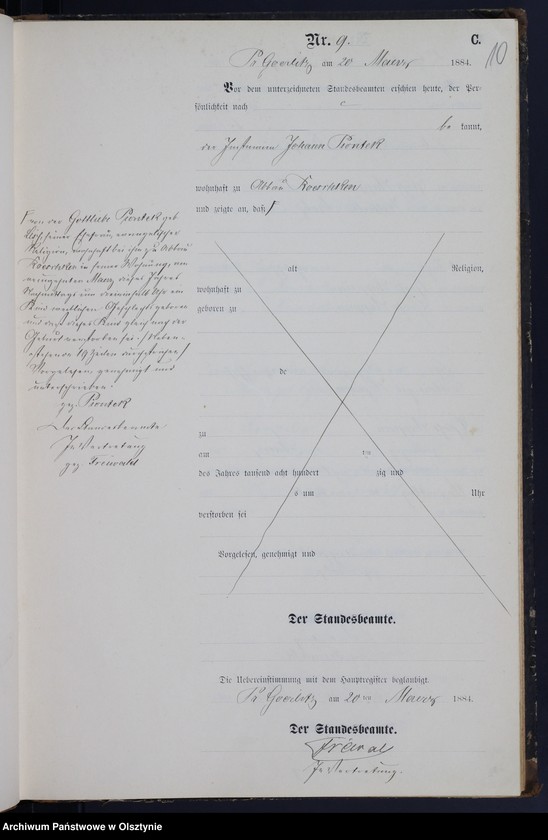 Nr. 9.
C.
10
Gr. Goerlitz am 20 Maerz 1884.
Vor dem unterzeichneten Standesbeamten erschien heute, der Persönlichkeit nach
be kannt,
der Johann Piontek
wohnhaft zu Abbau
und zeigte an, daß
von der Gottliebe Piontek geb
seiner Ehefrau, evangelischer
Religion, wohnhaft bei ihm zu Abbau
in seiner Wohnung, am
neunzehnten Maerz dieses Jahres
Nachmittags um Uhr ein
Kind weiblichen Geschlechts geboren
und daß dieses Kind gleich nach der
Geburt verstorben sei.
Vorgelesen, genehmigt und
unterschrieben
gez. Piontek
Der Standesbeamte
In Vertretung
gez Freiwald
alt Religion,
wohnhaft zu
geboren zu
de
zu
am ten
des Jahres tausend acht hundert zig und
s um Uhr
verstorben sei
Vorgelesen, genehmigt und
Der Standesbeamte.
Die Uebereinstimmung mit dem Hauptregister beglaubigt.
Gr. Goerlitz am 20 ten Maerz 1884.
Der Standesbeamte.
In Vertretung.
Archiwum Państwowe w Olsztynie